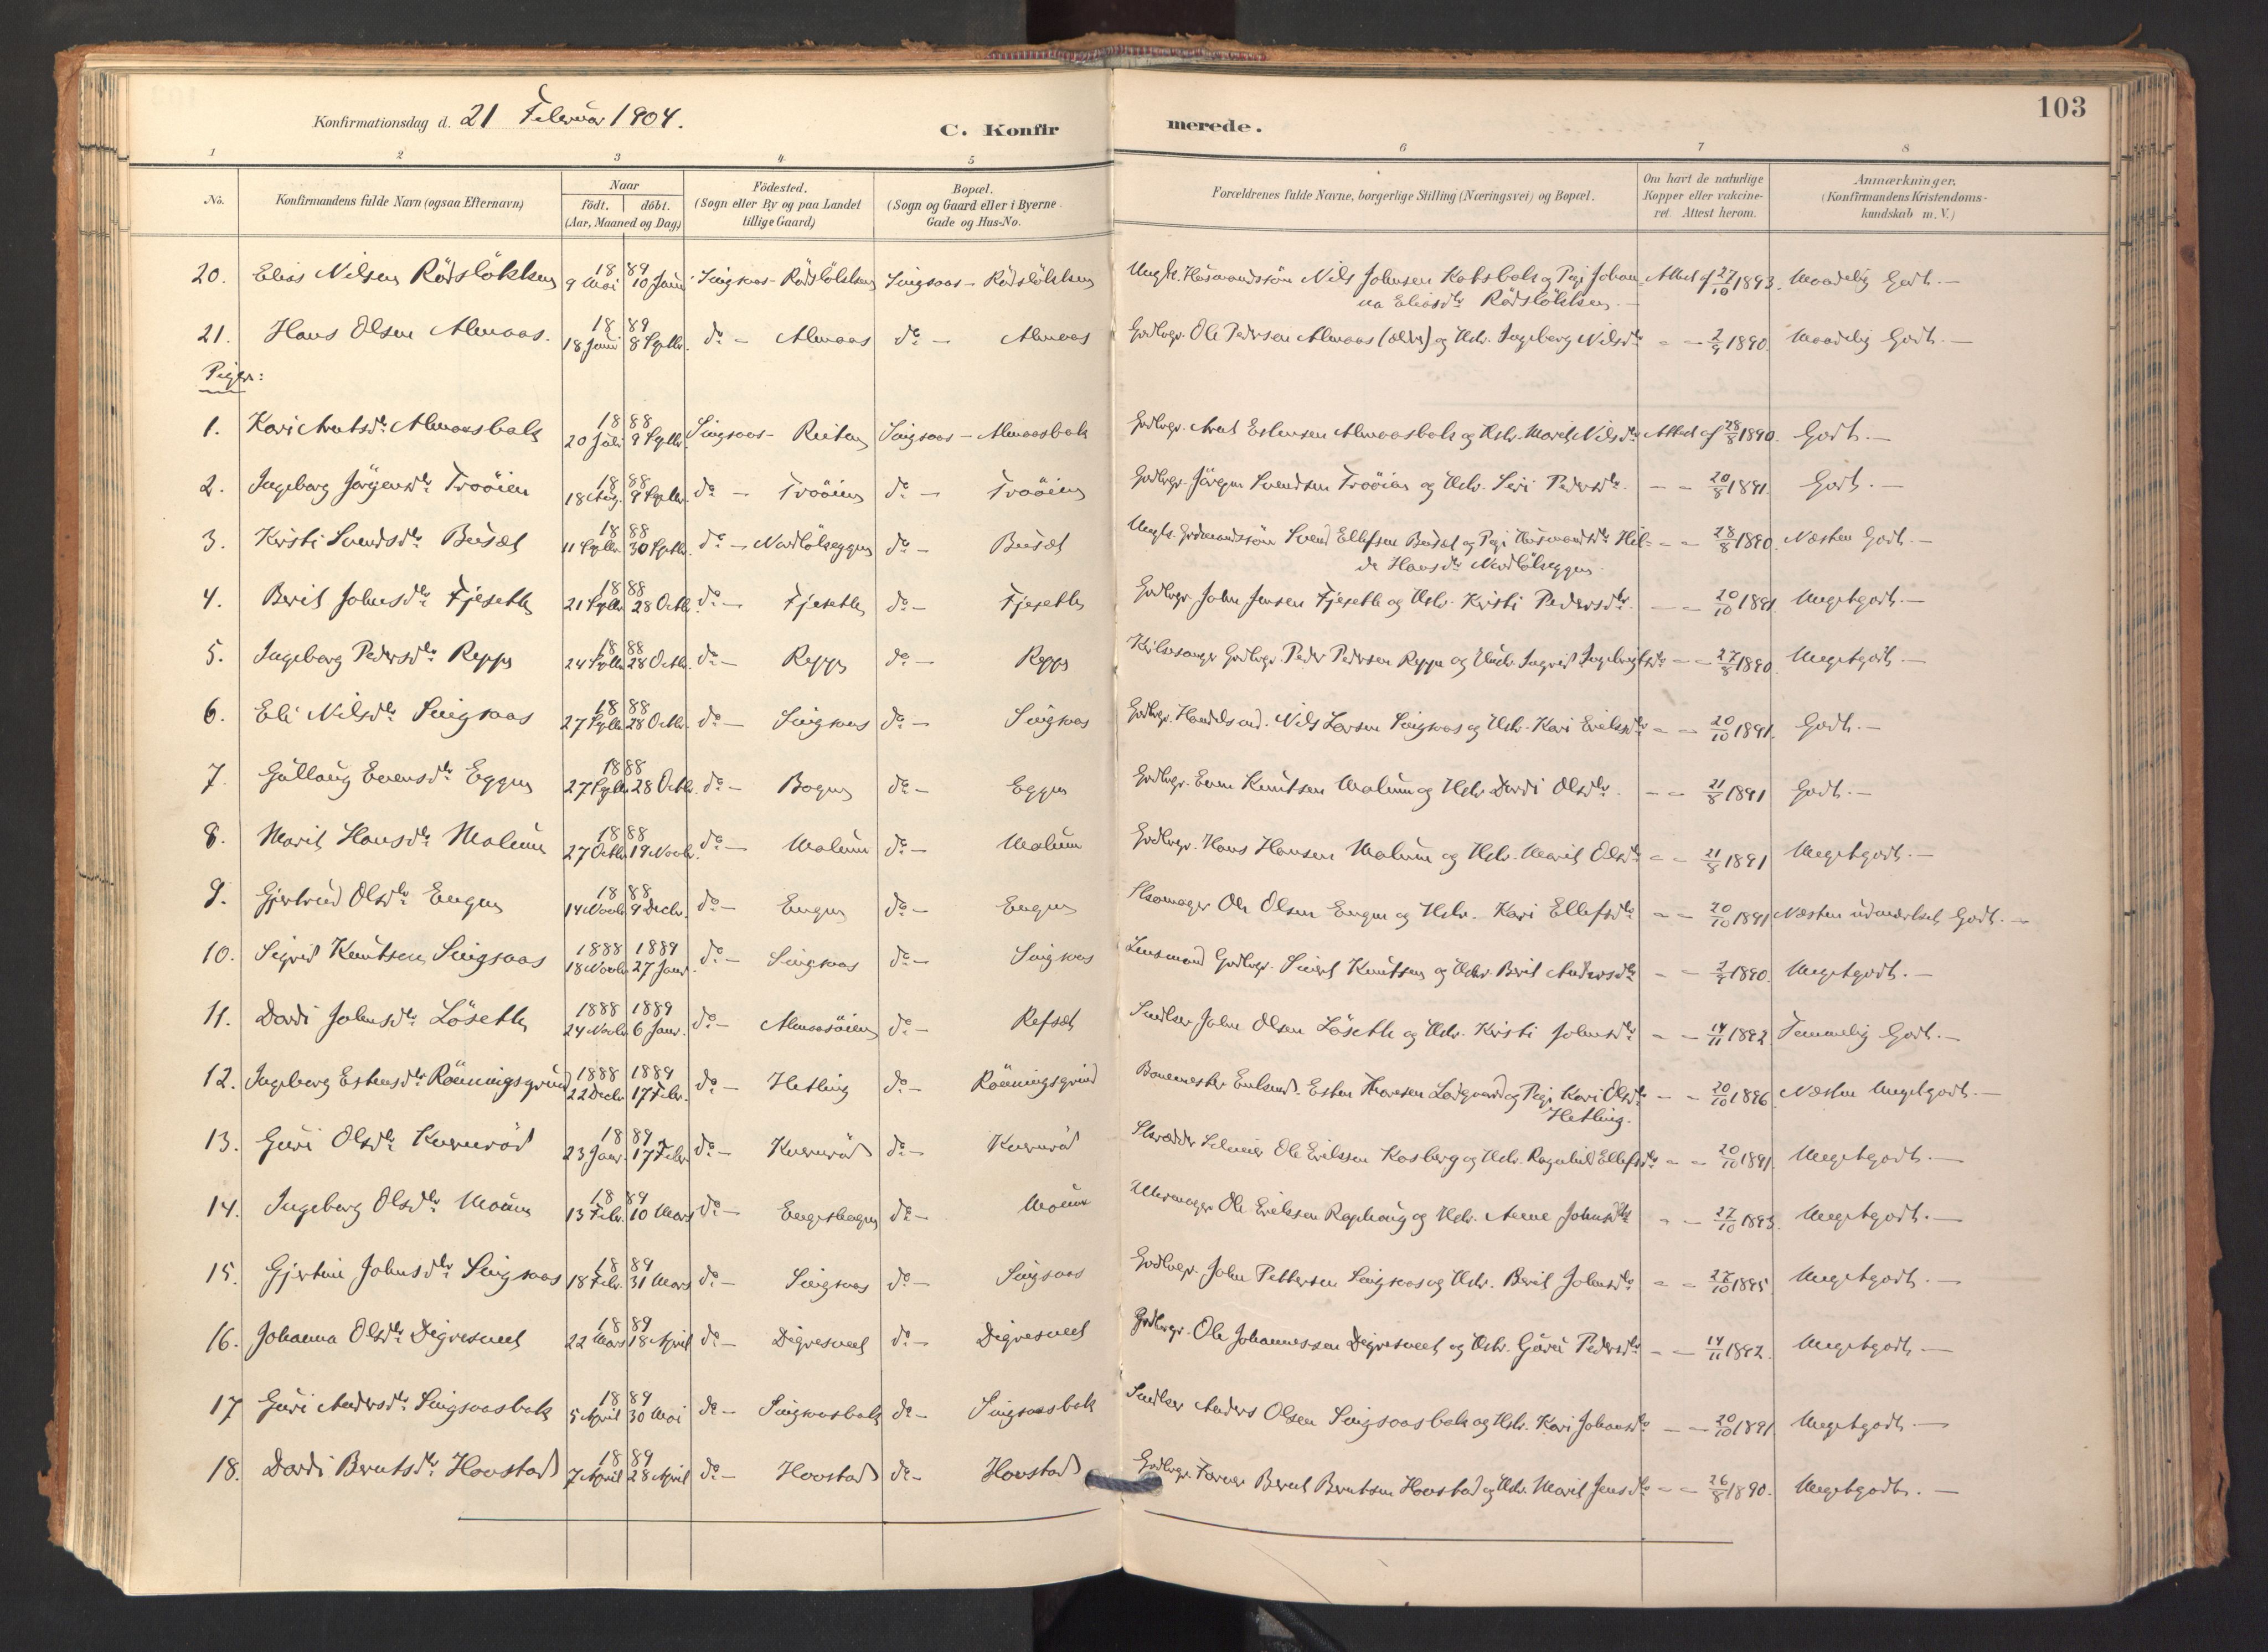 103
Konfirmationsdag d. 21 Februar 1904.
C. Konfirmerede.
1 2 3 4 5 6 7 8
No. | Konfirmandens fulde Navn (ogsaa Efternavn) | Naar født. døbt. (Aar, Maaned og Dag) | Fødested. (Sogn eller By og paa Landet tillige Gaard) | Bopæl. (Sogn og Gaard eller i Byerne Gade og Hus-No. | Forældrenes fulde Navne, borgerlige Stilling (Næringsvei) og Bopæl. | Om havt de naturlige Kopper eller vakcineret. Attest herom. | Anmærkninger, (Konfirmandens Kristendomskundskab m. V.)
20. Elias Nilsen Rödslökken 1889 9 Mai 10 Juni Singsaas - Rödslökken Singsaas - Rödslökken Ungk. Husmandssøn Nils Johnsen Kotsbak og Pige Johanna Eliasdtr Rödslökken. - Attest af 27/10 1893. Maadelig Godt. -
21. Hans Olsen Almaas. 1889 18 Juni 8 Septbr. do - Almaas do - Almaas Grdbrgr. Ole Pedersen Almaas (ældre) og Hstr. Ingeborg Nilsdtr - - 2/9 1890. Maadelig Godt. -
Piger:
1. Kari Arntsdtr Almaasbak 1888 20 Juli 9 Septbr. Singsaas - Reiten Singsaas - Almaasbak Grdbrgr. Arnt Estensen Almaasbak og Hstr. Marit Nilsdtr Attest af 28/8 1890. Godt. -
2. Ingeborg Jørgensdtr Trøøien 1888 18 Aug. 9 Septbr. do - Trøøien do - Trøøien Grdbrgr. Jørgen Svendsen Trøøien og Hstr. Seri Pedersdtr. - - 20/8 1891. Godt. -
3. Kristi Svendsdtr Busæt 1888 11 Septbr. 30 Septbr. do - Nordlökseggen do - Busæt Ungk. Grdmandssøn Svend Ellefsen Busæt og Pige Husmandsdtr Hilde Hansdtr Nordlökseggen. - - 28/8 1890. Næsten Godt. -
4. Berit Johnsdtr Fjeseth 1888 21 Septbr 28 Octbr. do - Fjeseth do - Fjeseth Grdbrgr. John Jensen Fjeseth og Hstr. Kristi Pedersdtr. - - 20/10 1891. Megetgodt. -
5. Ingeborg Pedersdtr Reppe 1888 24 Septbr 28 Octbr. do - Reppe do - Reppe Kirkesanger Grdbrgr. Peder Pedersen Reppe og Hustr. Ingrid Ingebrigtsdtr - - 27/8 1890. Megetgodt. -
6. Eli Nilsdtr Singsaas 1888 27 Septbr 28 Octbr. do - Singsaas do - Singsaas Grdbrgr. Handelsmd. Nils Larsen Singsaas og Hstr. Kari Eriksdtr - - 20/10 1891. Godt. -
7. Gullaug Evensdtr Eggen 1888 27 Septbr 28 Octbr. do - Bogen do - Eggen Grdbrgr. Even Knutsen Malum og Hstr Dordi Olsdtr. - - 21/8 1891 Godt. -
8. Marit Hansdtr Malum 1888 27 Octbr 19 Novbr. do - Malum do - Malum Grdbrgr. Hans Hansen Malum og Hstr. Marit Olsdtr - - 21/8 1891 Megetgodt. -
9. Gjertrud Olsdtr Engen 1888 14 Novbr 9 Decbr. do - Engen do - Engen Skomager Ole Olsen Engen og Hstr. Kari Ellefsdtr - - 20/10 1891 Næsten udmærket Godt. -
10. Sigrid Knutsen Singsaas 1888 1889 18 Novbr 27 Janr. do - Singsaas do - Singsaas Lensmand Grdbrgr. Sivert Knutsen og Hstr. Berit Andersdtr - - 2/9 1890. Megetgodt. -
11. Dordi Johnsdtr Löseth 1888 1889 24 Novbr. 6 Janr. do - Almaasöien do - Refsæt Smed John Olsen Löseth og Hstr. Kristi Johnsdtr - - 14/11 1892. Temmelig Godt. -
12. Ingeborg Estensdtr Rönningsgrind 1888 1889 22 Decbr. 17 Febr. do - Hetling do - Rönningsgrind Banemester Enkemd. Esten Thoresen Lödgaard og Pige Kari Olsdtr Hetling. - - 20/10 1896. Næsten Megetgodt. -
13. Guri Olsdtr Kurrröd 1889 23 Janr. 17 Febr do - Kurrröd do - Kurrröd Skrædder Ole Eriksen Kosberg og Hstr. Ragnhild Ellefsdtr - - 20/10 1891. Megetgodt. -
14. Ingeborg Olsdtr Moum 1889 13 Febr. 10 Mars do - Engeshagen do - Moum Uhrmager Ole Eriksen Raphaug og Hstr. Anne Johnsdtr - - 27/10 1893. Megetgodt. -
15. Gjertine Johnsdtr Singsaas 1889 18 Febr. 31 Mars do - Singsaas do - Singsaas Grdbrgr. John Pettersen Singsaas og Hstr. Berit Johnsdtr - - 27/10 1895. Megetgodt. -
16. Johanna Olsdtr Digresmet 1889 22 Mars 18 April do - Digresmet do - Digresmet Grdbrgr. Ole Johannessen Digresmet og Hstr. Guru Pedersdtr - - 14/11 1892. Megetgodt. -
17 Guri Andersdtr Singsaasbak 1889 5 April 30 Mai do - Singsaasbak do - Singsaasbak Anders Olsen Singsaasbak og Hstr. Kari Johansdtr - - 20/10 1891. Megetgodt. -
18. Dordi Berntsdtr Hovstad 1889 7 April 28 April do - Hovstad do - Hovstad Grdbrgr. Farver Bernt Berntsen Hovstad og Hstr. Marit Jensdtr - - 26/8 1890. Megetgodt. -